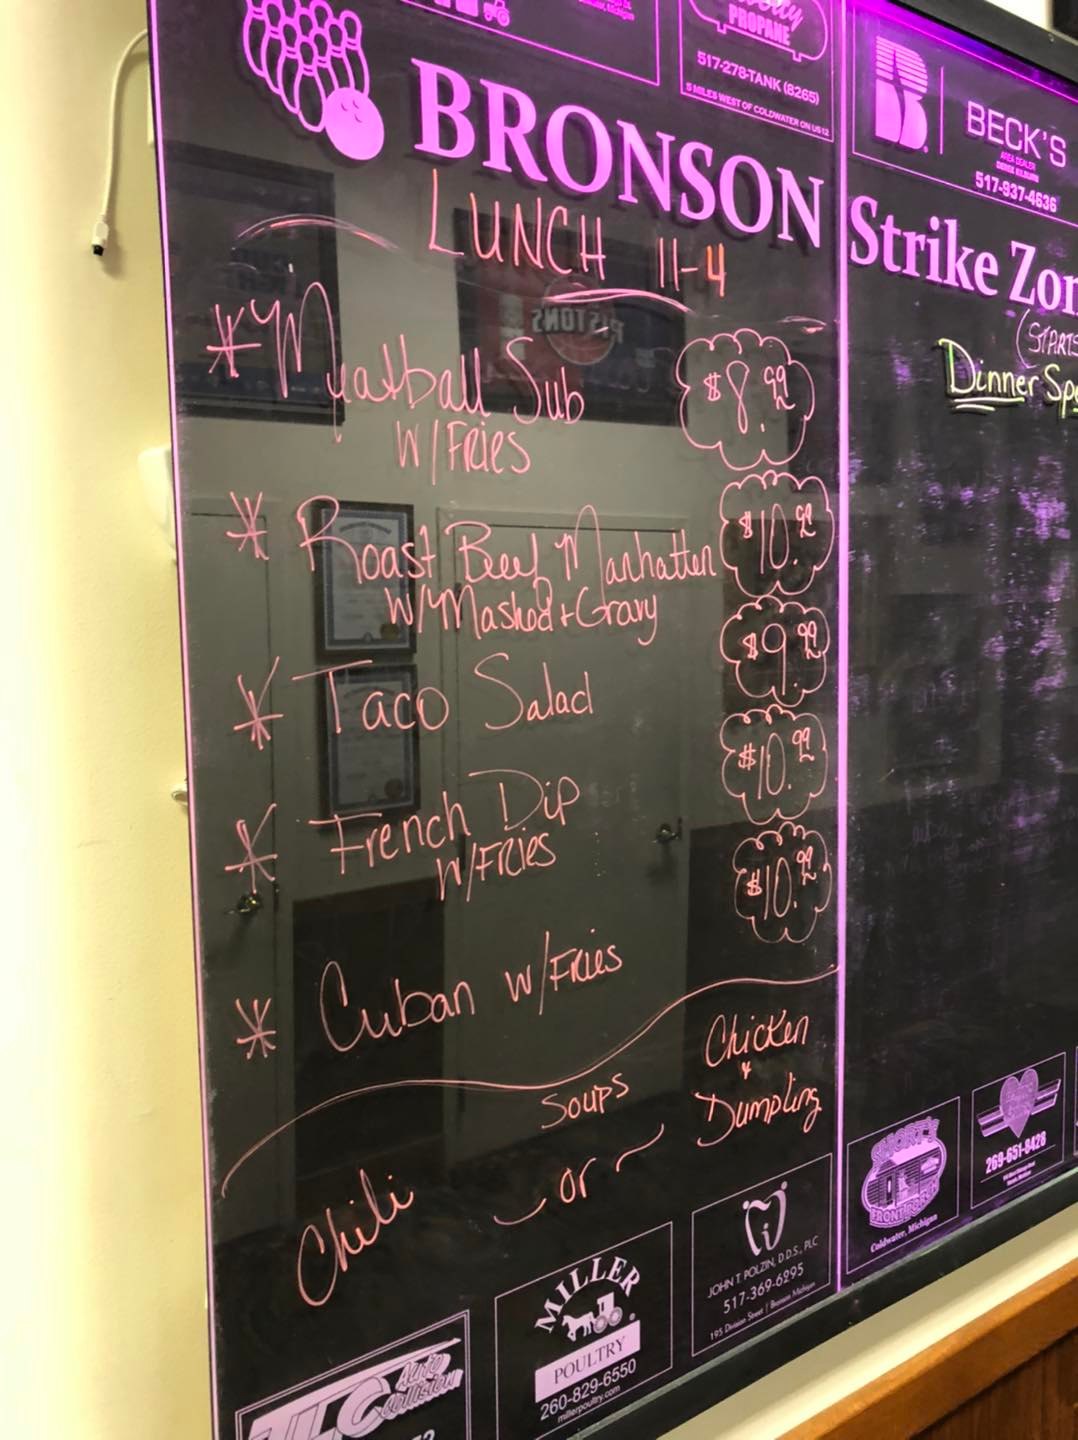 PROPANE
517-278-TANK (8265)
5 MILES WEST OF COLDWATER ON US 12
BECK'S
AREA DEALER
517-937-4636
BRONSON Strike Zon
LUNCH 11-4
* Meatball Sub $8.99
W/FRIES
* Roast Beef Manhatten $10.99
W/Mashed + Gravy
* Taco Salad $9.99
* French Dip $10.99
W/FRIES
* Cuban w/FRIES $10.99
Soups
Chili - or - Chicken
+
Dumpling
(STARTS
Dinner Spe
TLC Auto Collision
MILLER
POULTRY
260-829-6550
millerpoultry.com
JOHN T. POLZIN, D.D.S., PLC
517-369-6295
195 Division Street | Bronson Michigan
FRONT PORCH
Coldwater, Michigan
269-651-8428
PISTONS